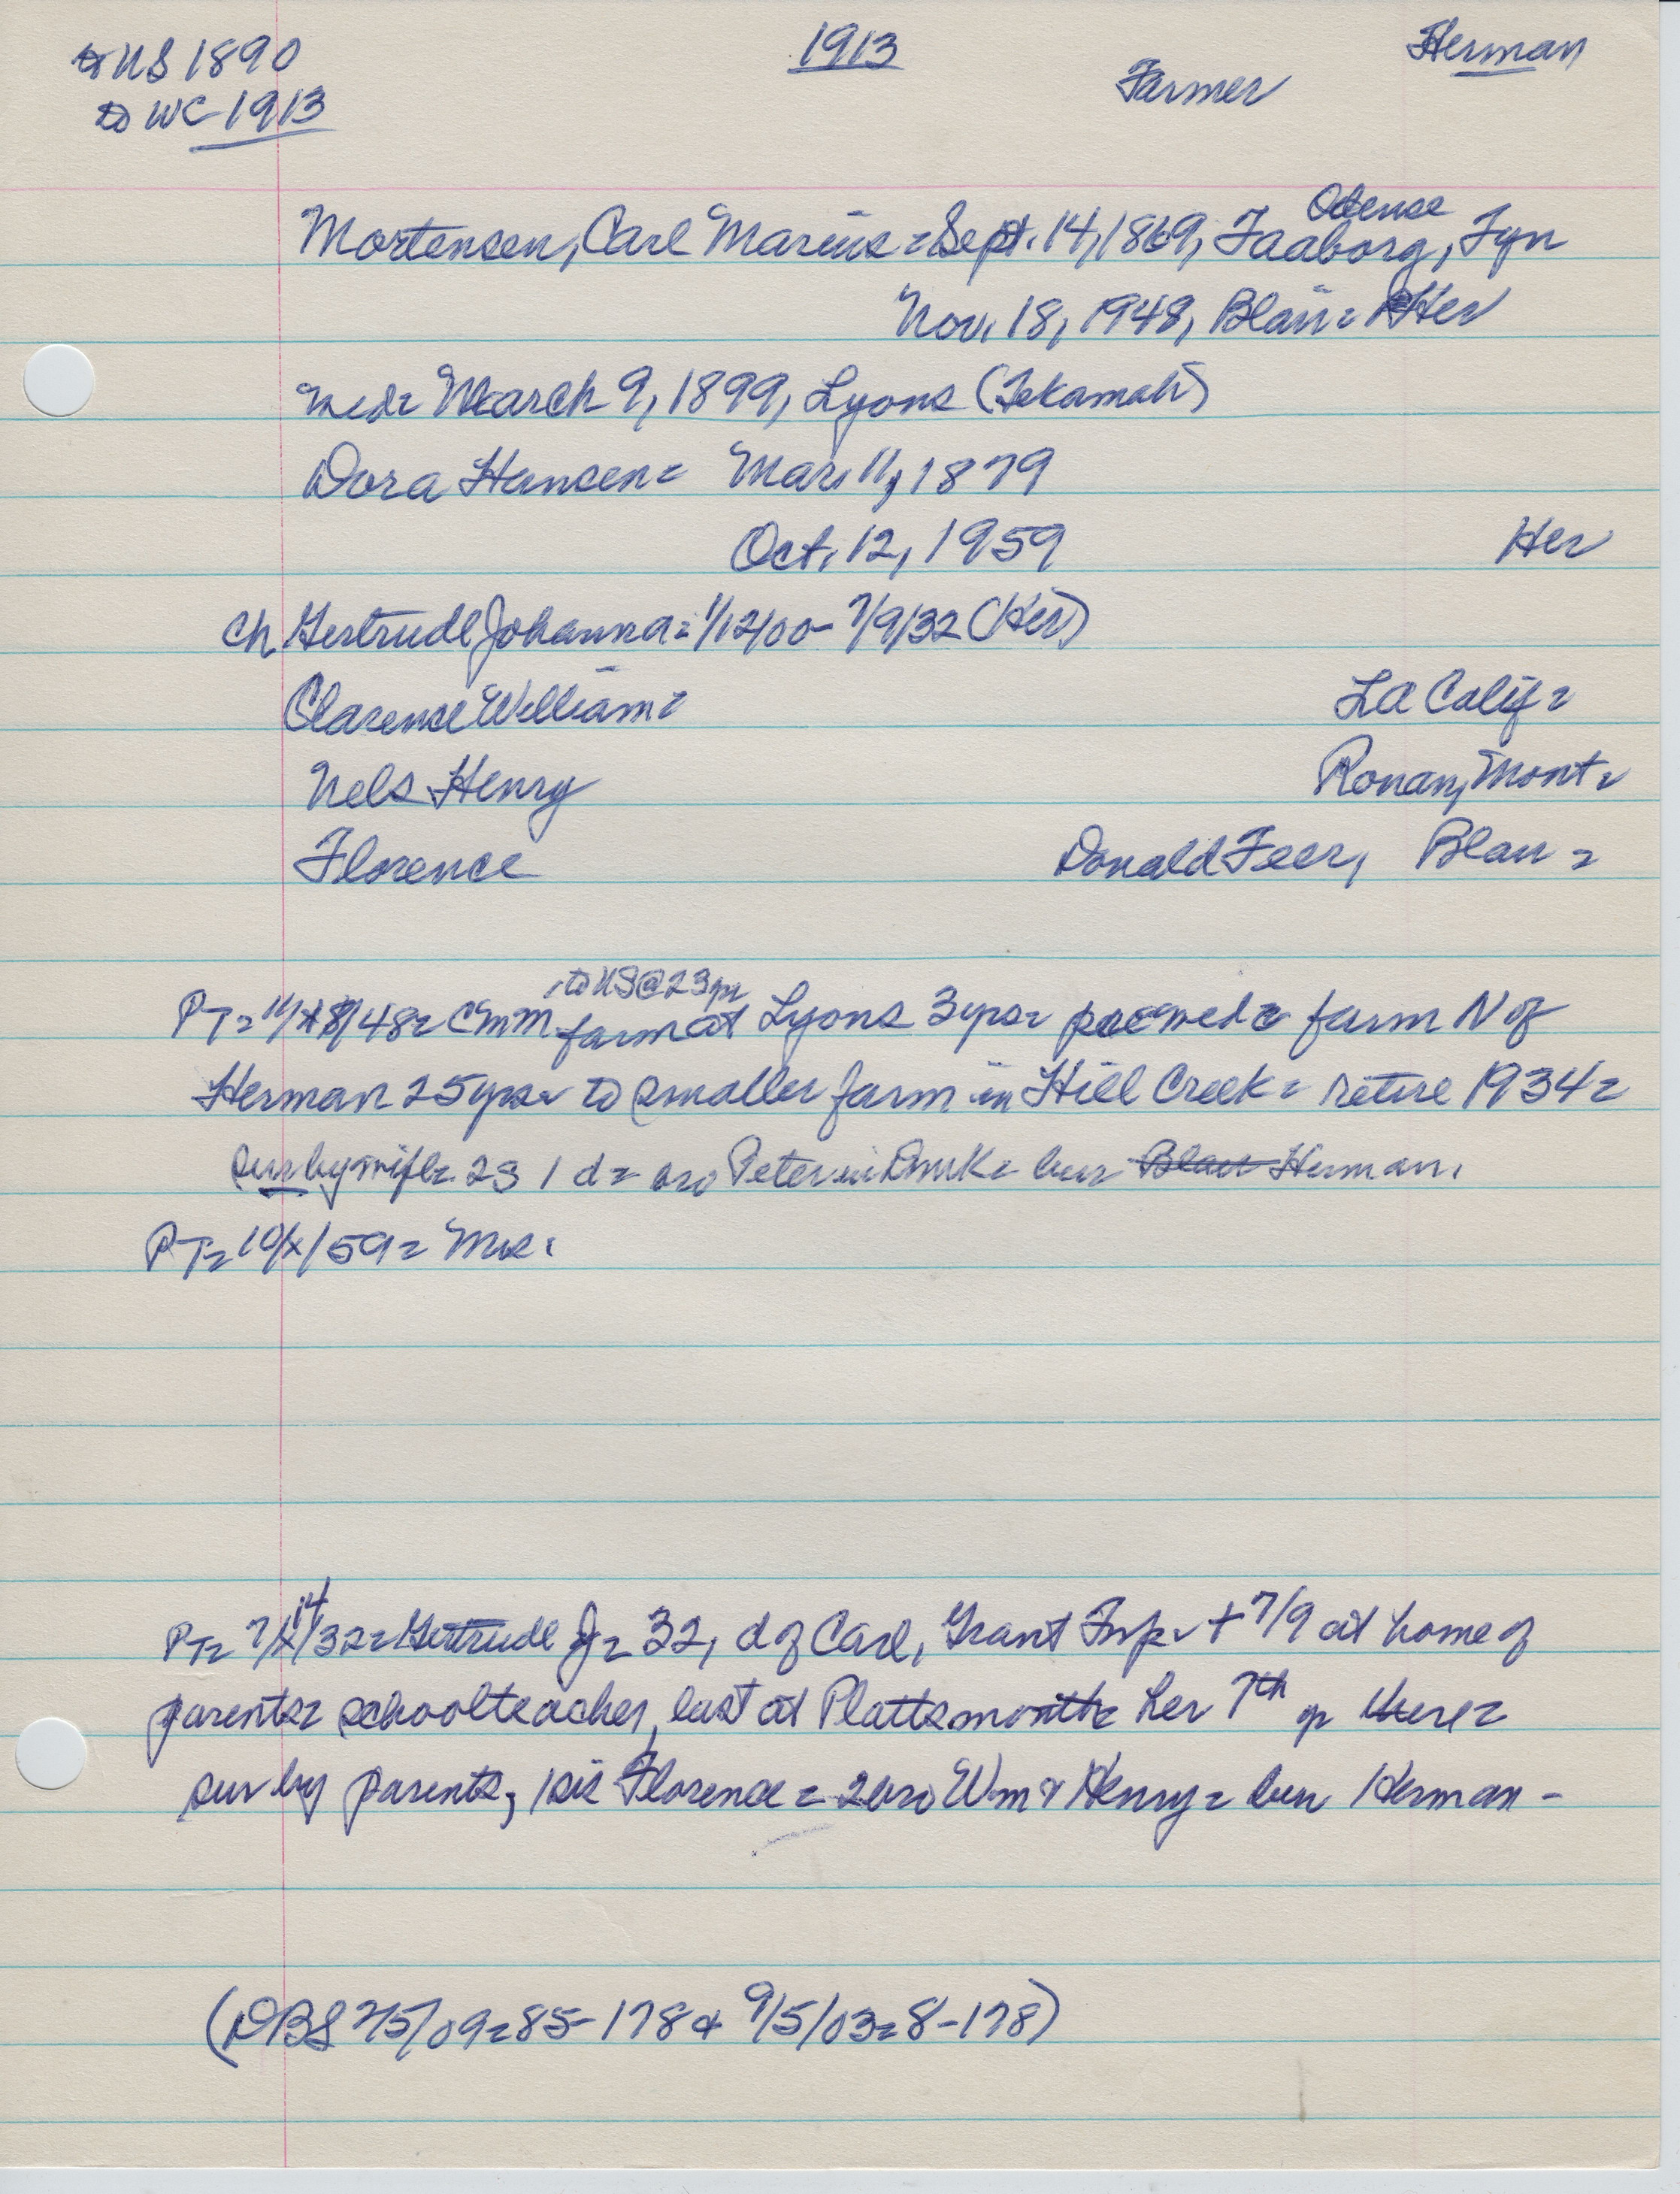 to US 1890
1913
Herman
Farmer
to WC 1913
Odense
Mortensen, Carl Marius = Sept. 14, 1869, Faaborg, Fyn
Nov. 18, 1948, Blair = Her
med = March 9, 1899, Lyons (Tekamah)
Dora Hansen = Mar. 11, 1879
Oct. 12, 1959 Her
Ch Gertrude Johanna = 1/12/00 - 7/9/32 (Her)
Clarence William = LA Calif =
Nels Henry Ronan, Mont =
Florence Donald Feer, Blair =
, to US @ 23 yr
PT = 11/18/48 = CMM farm at Lyons 3 yrs = med = farm N of
Herman 25 yrs = to smaller farm in Hill Creek = retire 1934 =
sur by wife = 2S 1 d = bro Peter in Dmk = bur Blair Herman.
PT = 10/x/59 = Mrs.
PT = 7/14/32 = Gertrude J = 32, d of Carl, Grant Twp = + 7/9 at home of
parents = schoolteacher, last at Plattsmouth = her 7th yr there =
sur by parents, 1 sis Florence = 2 bro Wm & Henry = bur Herman -
(DBS 2/5/09 = 85-178 & 9/5/03 = 8-178)